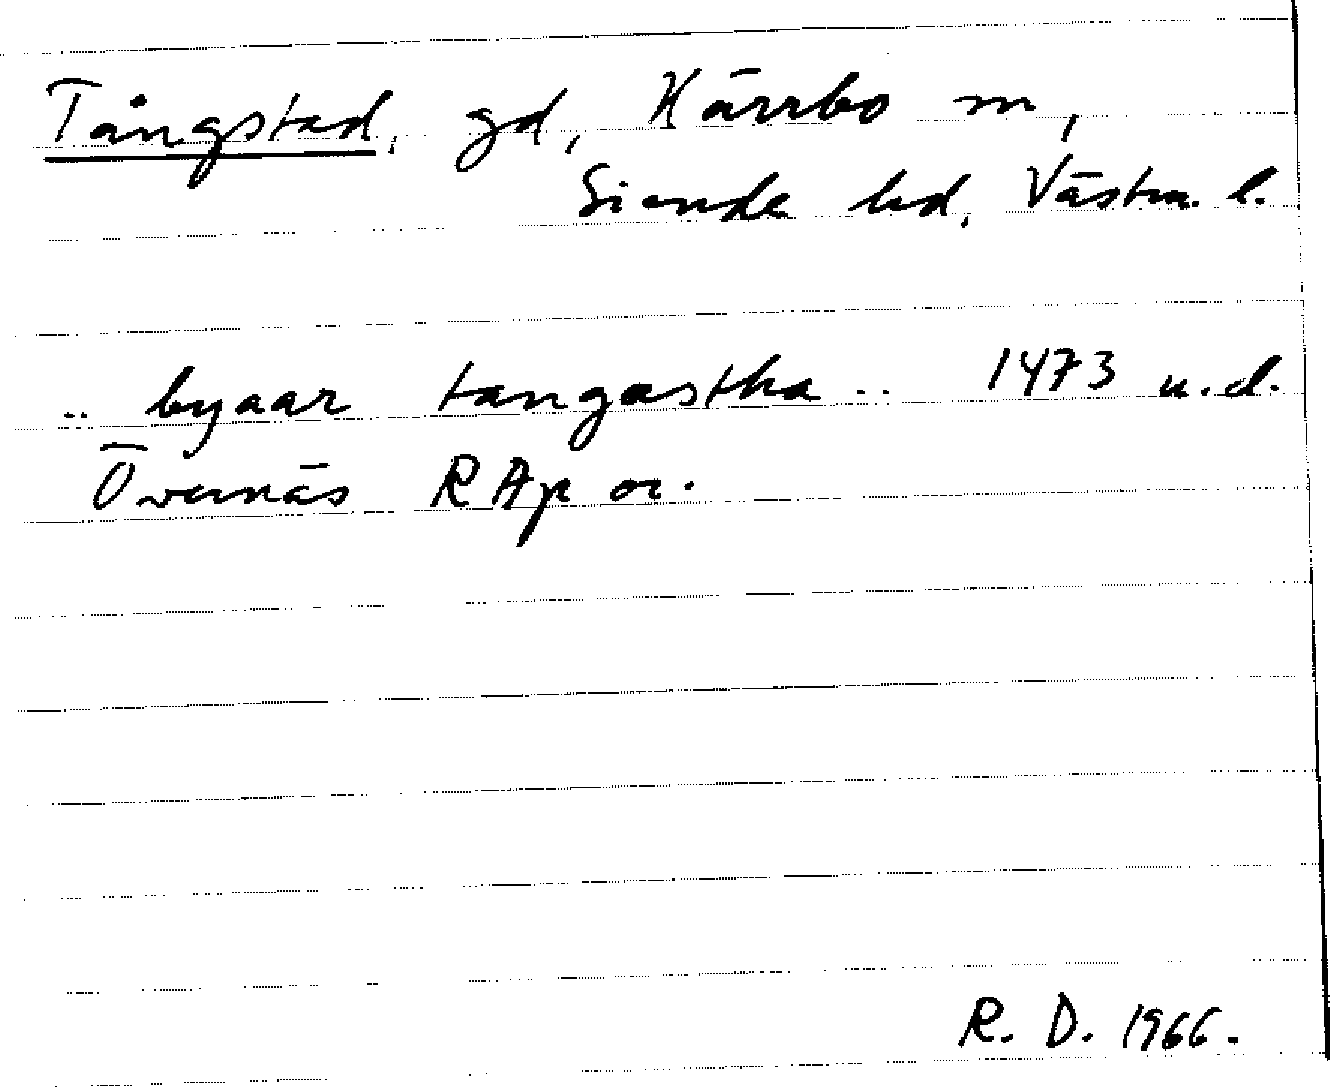 Tångstad, gd, Kärrbo sn,
Siende hd, Västm. l.
.. byaar tangastha .. 1473 u.d.
Övernäs RAp or.
R. D. 1966.